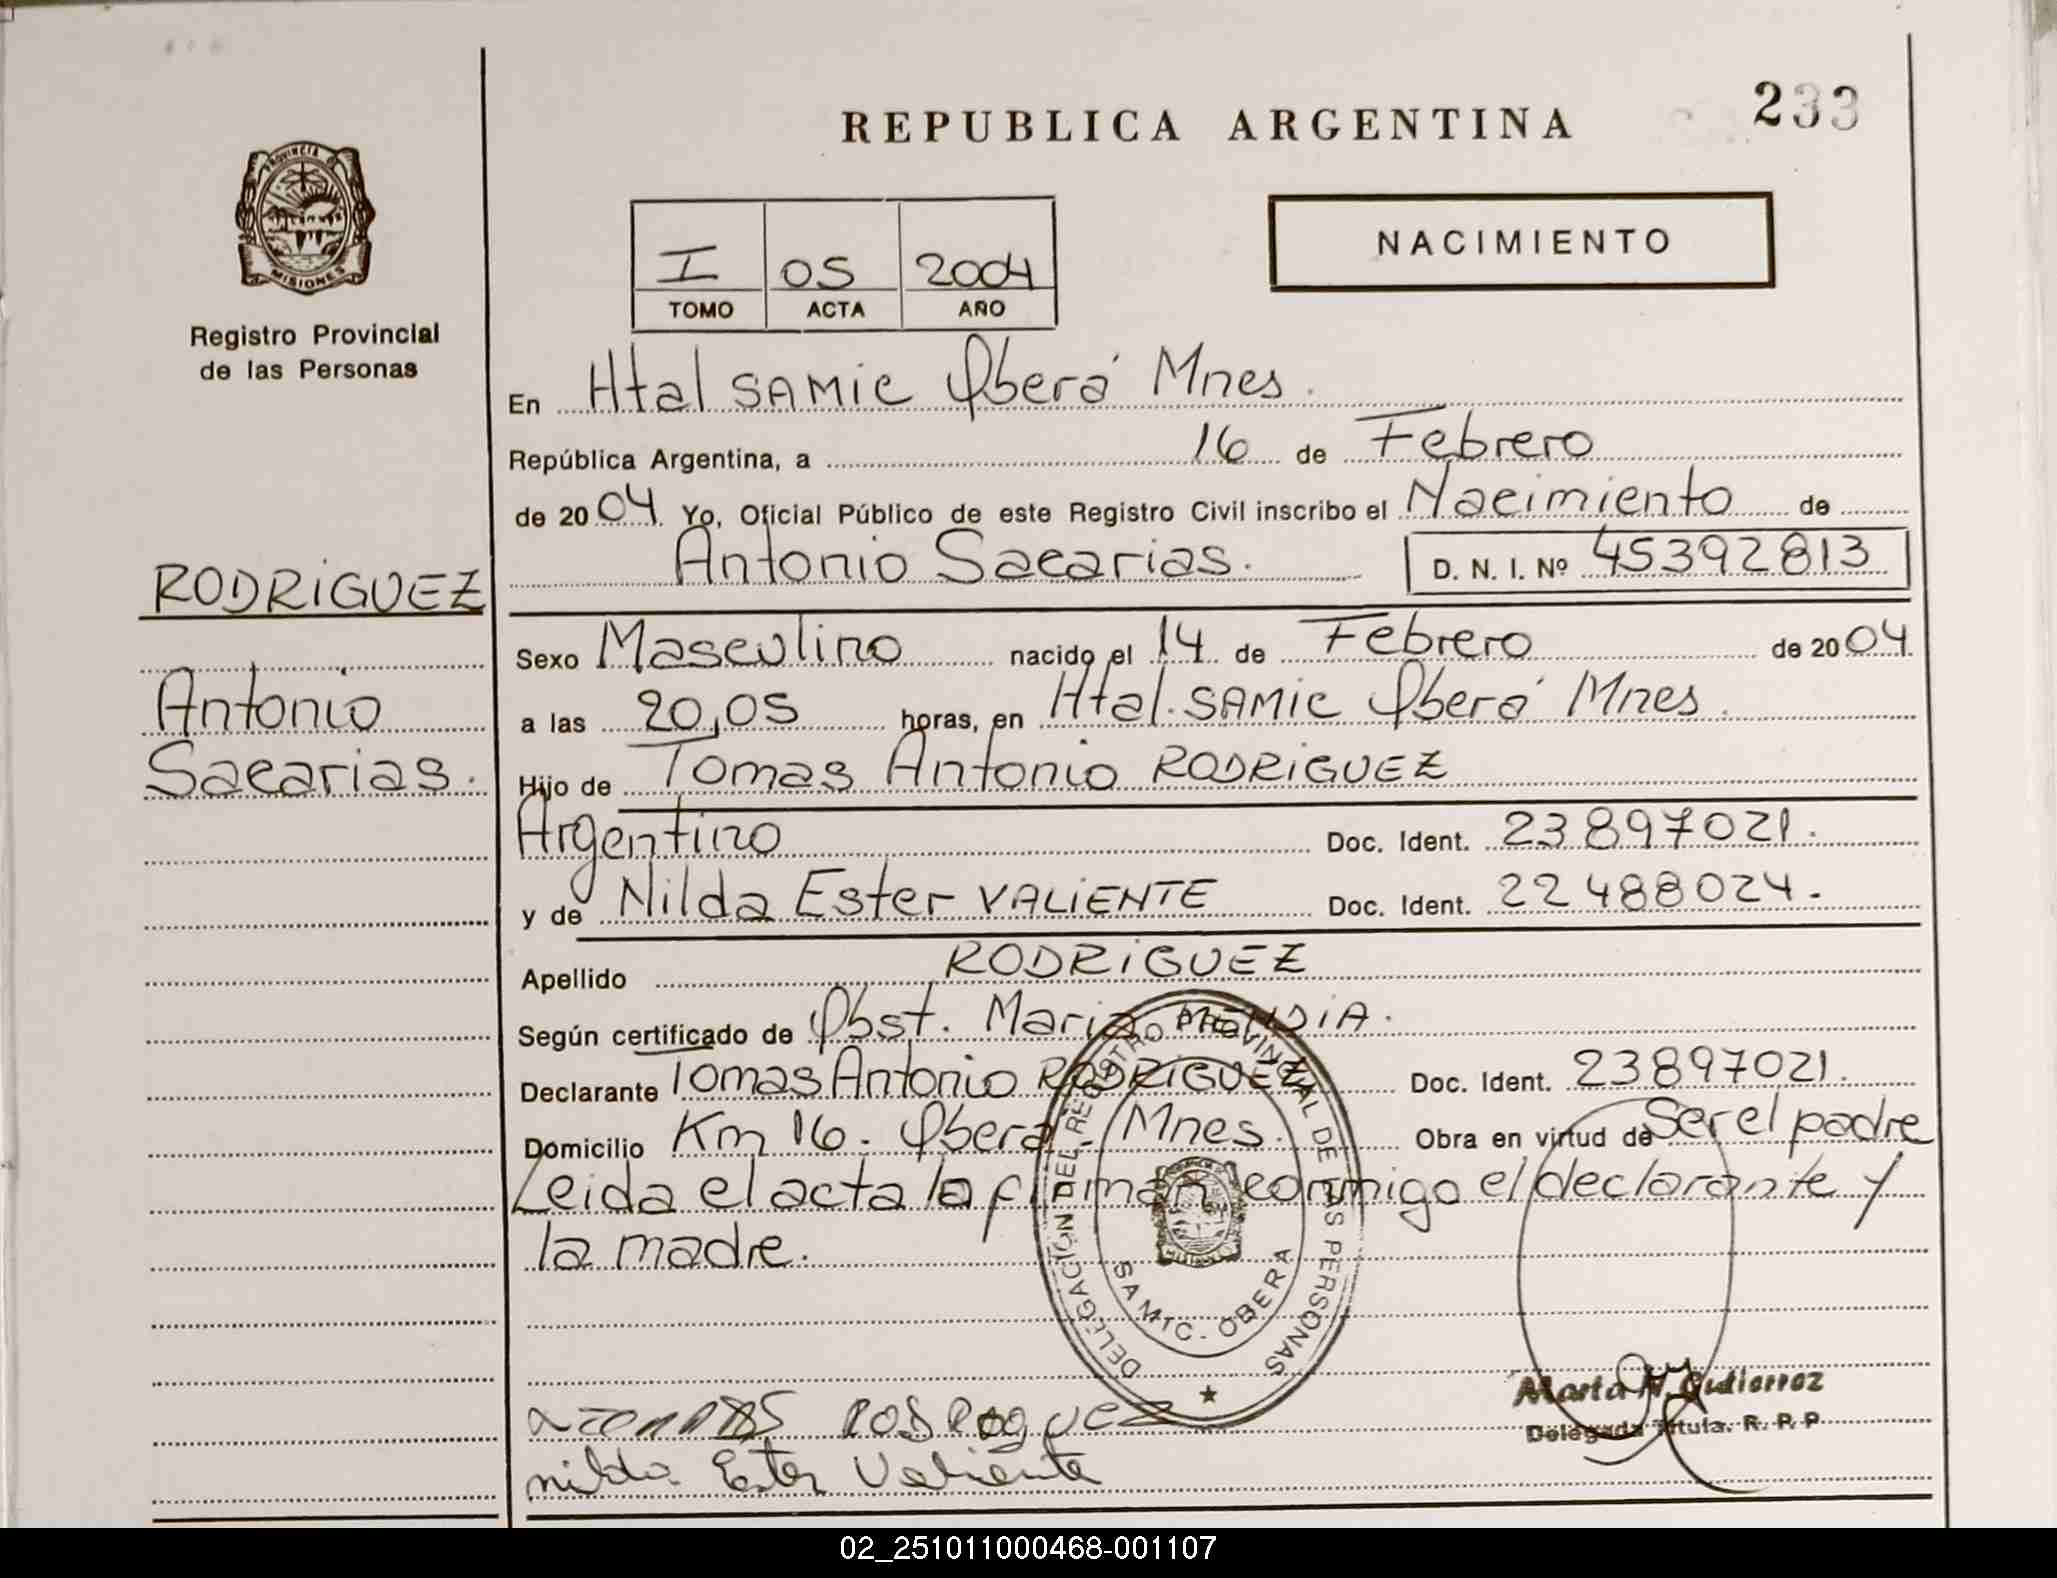 REPUBLICA ARGENTINA
233
PROVINCIA DE
MISIONES
Registro Provincial
de las Personas
I 05 2004
TOMO ACTA AÑO
NACIMIENTO
En Htal SAMIC Oberá Mnes.
República Argentina, a 16 de Febrero
de 2004 Yo, Oficial Público de este Registro Civil inscribo el Nacimiento de
Antonio Sacarias. D. N. I. Nº 45392813
RODRIGUEZ
Antonio
Sacarias.
Sexo Masculino nacido el 14 de Febrero de 2004
a las 20,05 horas, en Htal. SAMIC Oberá Mnes.
Hijo de Tomas Antonio RODRIGUEZ
Argentino Doc. Ident. 23897021.
y de Nilda Ester VALIENTE Doc. Ident. 22488024.
Apellido RODRIGUEZ
Según certificado de Obst. Maria
Declarante Tomas Antonio RODRIGUEZ Doc. Ident. 23897021.
Domicilio Km 16. Oberá. Mnes. Obra en virtud de Ser el padre
Leida el acta la firman conmigo el declarante y
la madre.
DELEGACIÓN DEL REGISTRO PROVINCIAL DE LAS PERSONAS
SAMIC. OBERA
Rodroguez
nilda Ester Valiente
Marta N. Gutierrez
Delegada Titula. R. P. P
02_251011000468-001107